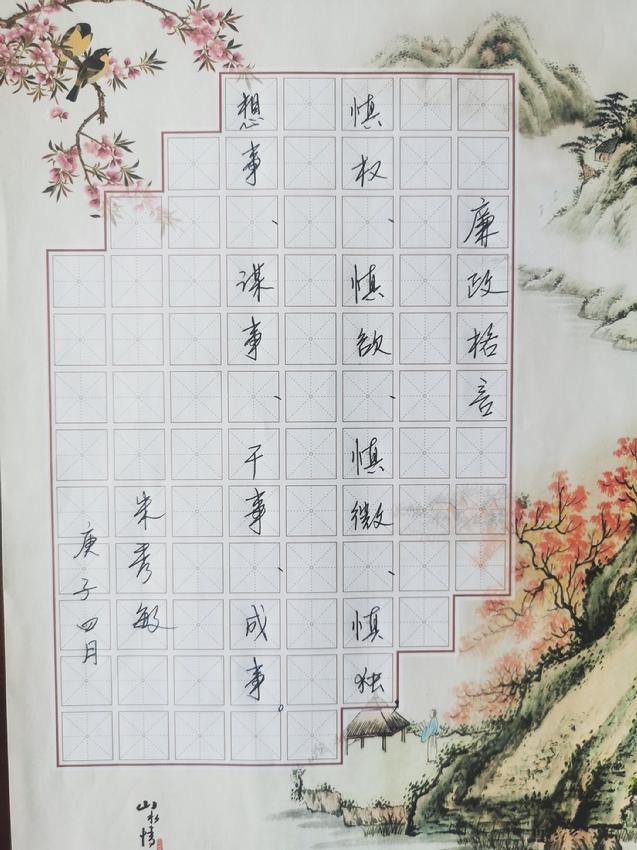 廉政格言
慎权、慎欲、慎微、慎独
想事、谋事、干事、成事。
朱秀敏
庚子四月
山水情